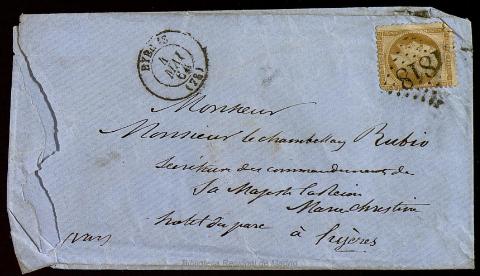 4
MAI
(78)
818
Monsieur
Monsieur le chambellan Rubio
Secrétaire des commandements de
Sa Majesté la Reine
Marie Christine
hotel du parc à hyères
Var
Biblioteca Regional de Madrid